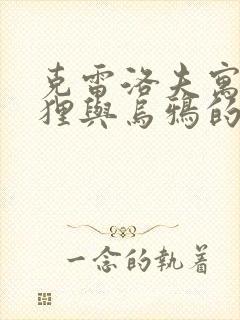 克雷洛夫寓
狸與烏鴉的
一念的執着